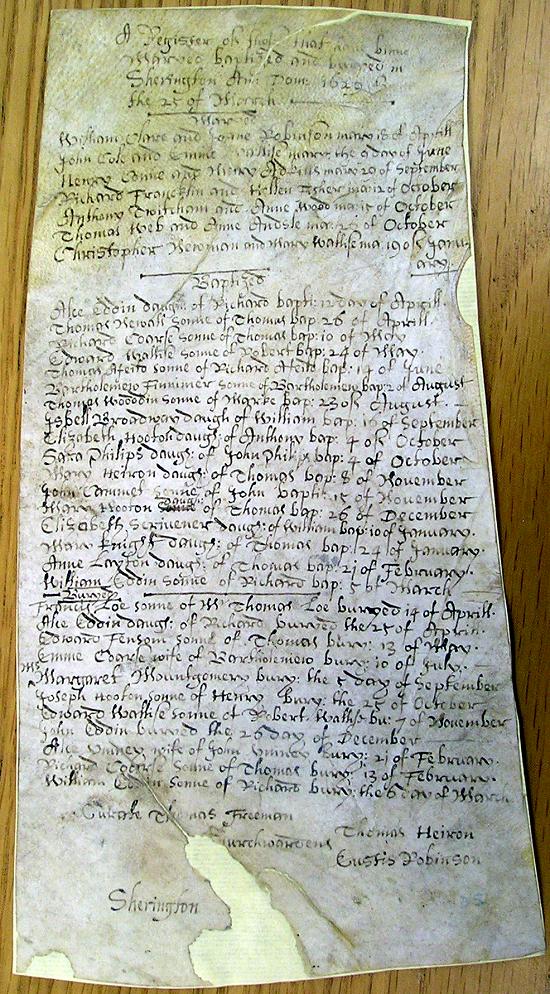 A Register of those that have binne
Maryed baptized and buryed in
Sherington Ann: Dom: 1629
the 25 of March
Maryed
William Clare and Joane Robinson mary: 18 of Aprill
John Cole and Emme Wallise mary: the 9 day of June
Henry Conne and Mary Adkins mary 20 of September
Richard Francklin and Hellen Fisher mar: 12 of October
Anthony Twitcham and Anne Wood mar: 15 of October
Thomas Web and Anne mar: of October
Christopher Newman and Mary Wallise ma: 19 of Janu
ary
Baptized
Alce Eddin daug: of Richard bapti: 12 day of Aprill
Thomas Newall sonne of Thomas bap 26 of Aprill
Richard Coarse sonne of Thomas bap: 10 of May
Edward Wallise sonne of Robert bap: 24 of May
Thomas sonne of Richard bap: 14 of June
Bartholemew Finnimer sonne of Bartholemew bap: 2 of August
Thomas Wooddin sonne of Marke bap: 23 of August
Isbell Broadway daugh of William bap: of September
Elizabeth Hooton daug: of Anthony bap: 4 of October
Sara Philips daug: of John Philips bap: 4 of October
Mary Heiron daug: of Thomas bap: 8 of November
John sonne of John bapti: 15 of November
Mary Hooton daug: of Thomas bap: 26 of December
Elizabeth Scrivener daug: of William bap: 10 of January
Mary Knight daug: of Thomas bap: 24 of January
Anne Layton daug: of Thomas bap: 21 of February
William Eddin sonne of Richard bap: 5 of March
Buryed
Francis Loe sonne of Mr Thomas Loe buryed 14 of Aprill
Alce Eddin daug: of Richard buryed the 25 of Aprill
Edward Fensom sonne of Thomas bury: 13 of May
Emme Coarse wife of Bartholemew bury: 10 of July
Mrs Margaret Mountgomery bury: the 5 day of September
Joseph Hooton sonne of Henry bury: the 25 of October
Edward Wallise sonne of Robert Wallise bu: 7 of November
John Eddin buryed the 26 day of December
Alce Umney wife of John Umney bury: 21 of February
Richard Coarse sonne of Thomas bury: 13 of February
William Eddin sonne of Richard bury: the 6 day of March
Curate Thomas Freeman
Churchwardens Thomas Heiron
Custis Robinson
Sherington